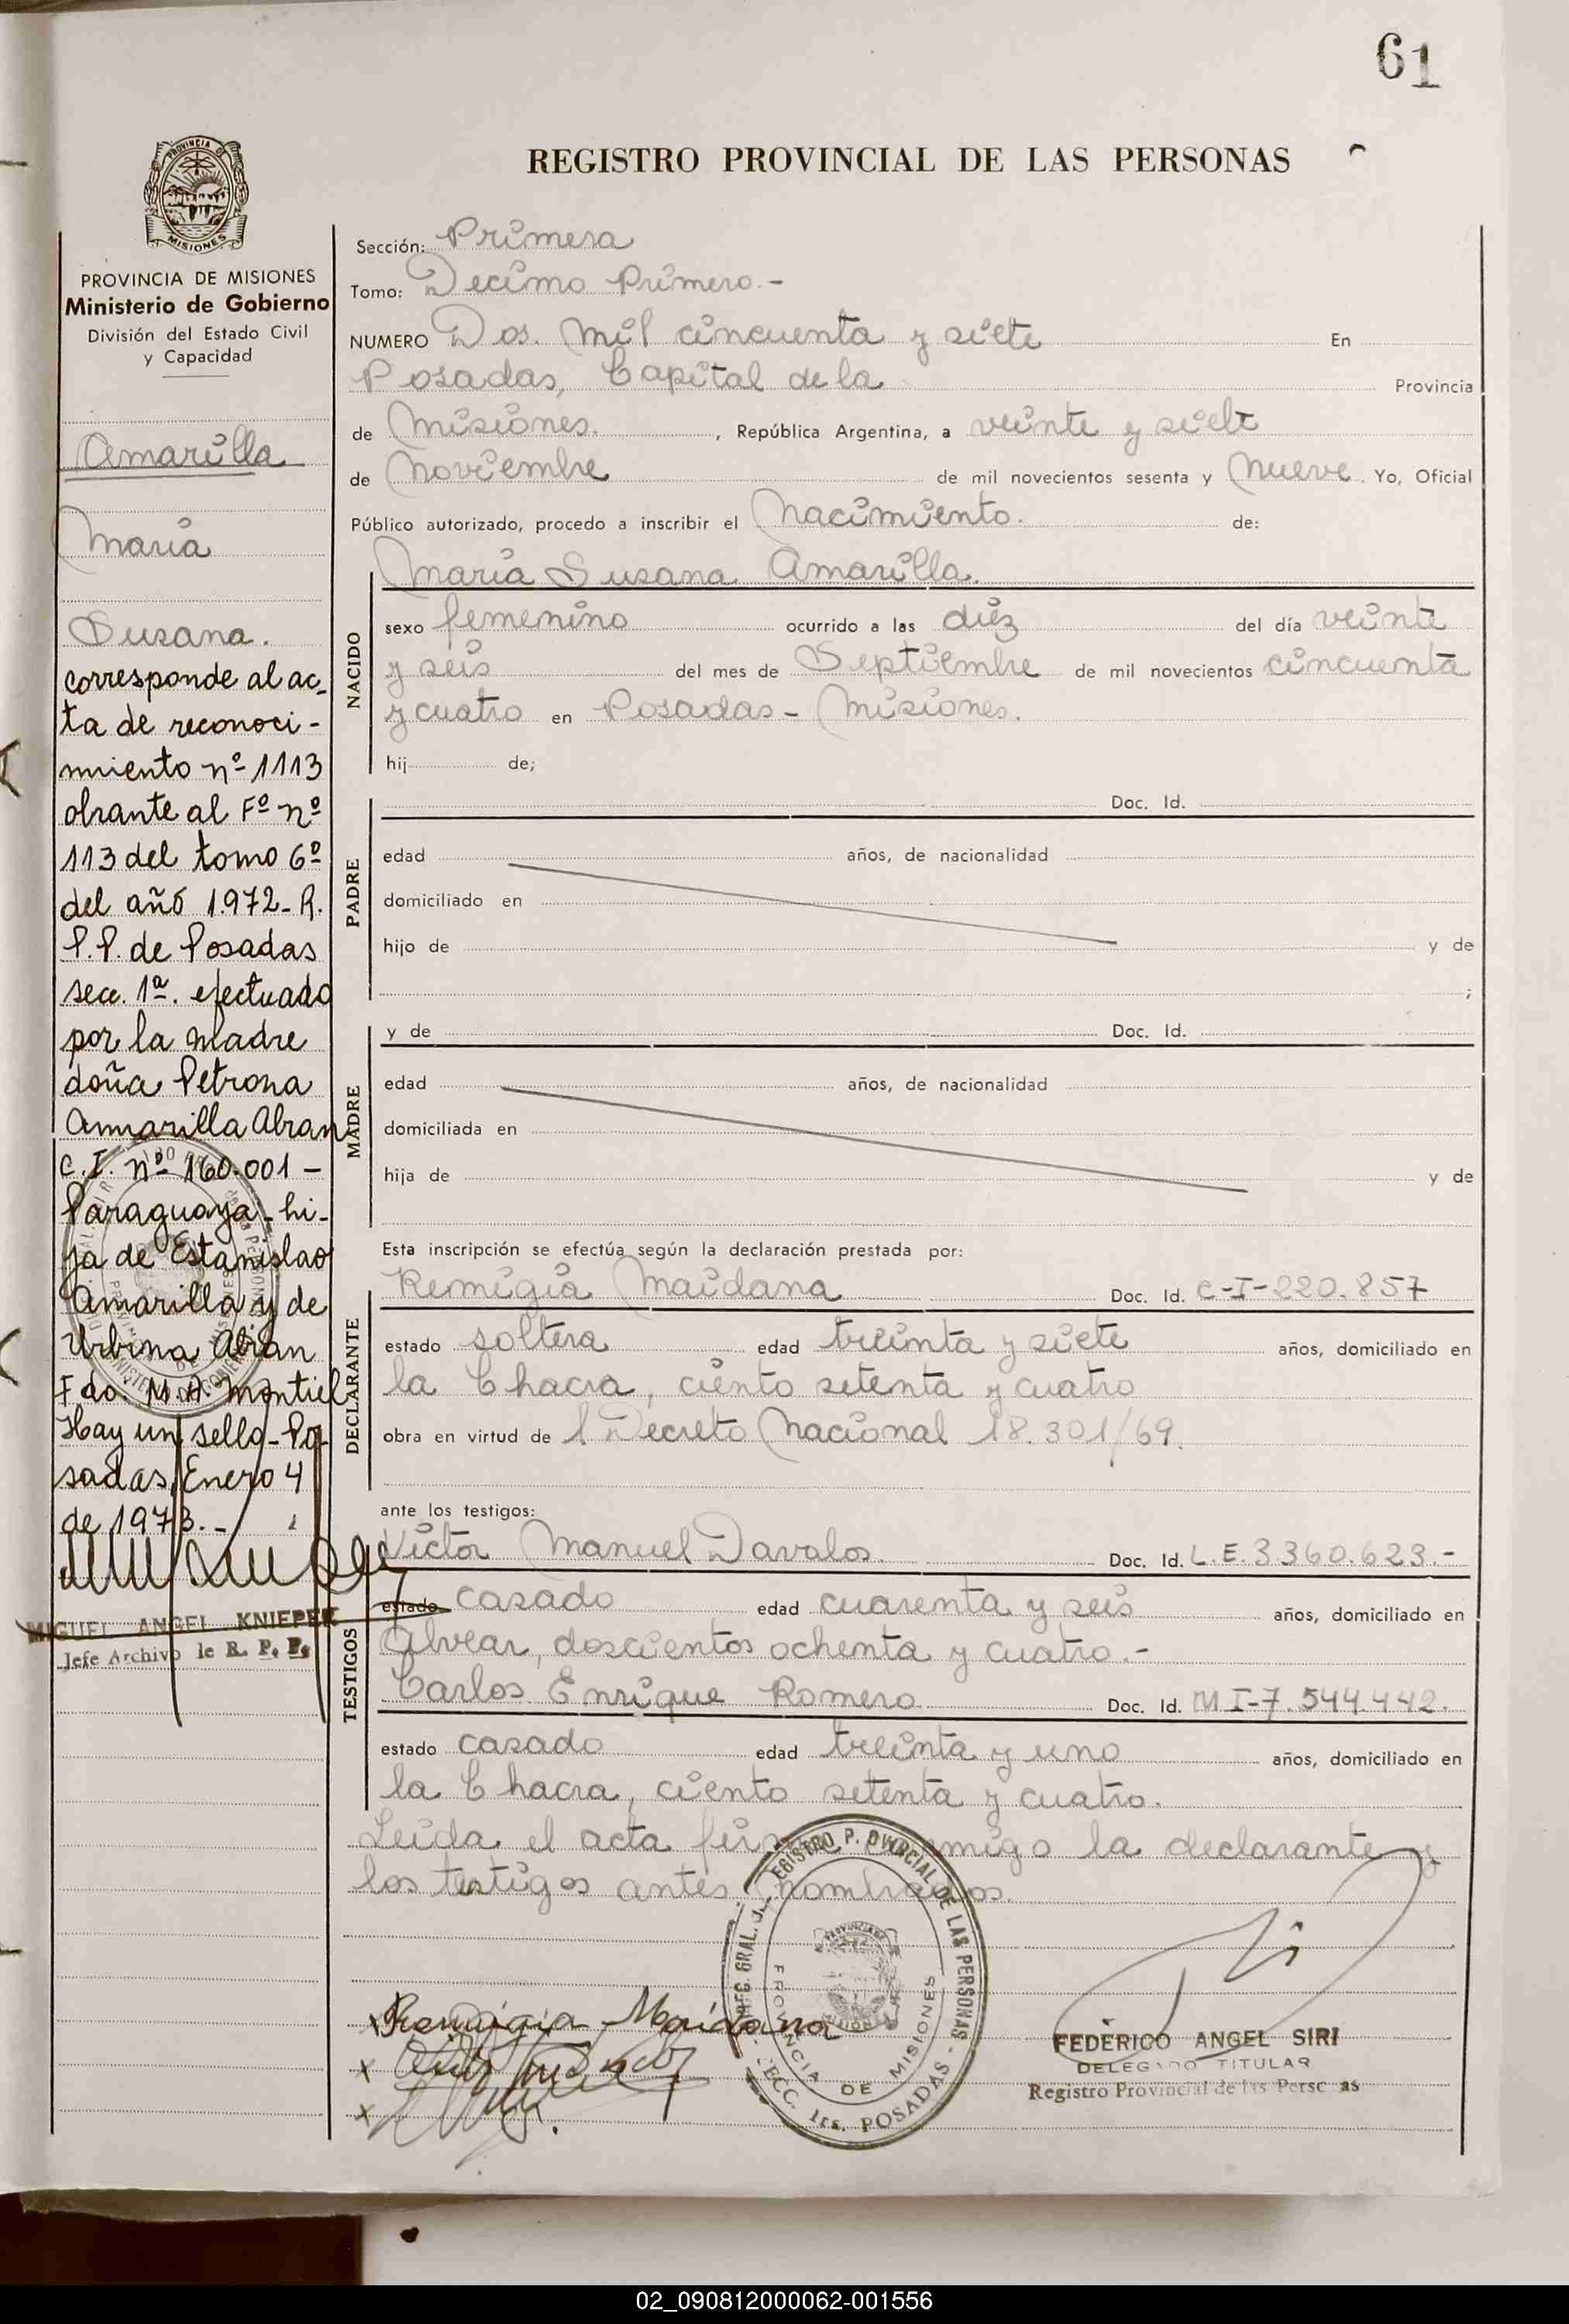 61
REGISTRO PROVINCIAL DE LAS PERSONAS
PROVINCIA DE MISIONES
Ministerio de Gobierno
División del Estado Civil
y Capacidad
Amarilla
Maria
Susana.
corresponde al ac-
ta de reconoci-
miento nº 1113
obrante al Fº nº
113 del tomo 6º
del año 1.972- R.
P.P. de Posadas
secc. 1ª. efectuado
por la madre
doña Petrona
Amarilla Abran
C.I. nº 160.001 -
Paraguaya - hi-
ja de Estanislao
Amarilla y de
Urbina Abran
Fdo. M. A. Montiel
Hay un sello - Po-
sadas, Enero 4
de 1973.-
MIGUEL ANGEL KNIEPER
Jefe Archivo de R. P. P.
Sección: Primera
Tomo: Decimo Primero.-
NUMERO Dos. Mil cincuenta y siete En
Posadas, Capital de la Provincia
de Misiones. , República Argentina, a veinte y siete
de Noviembre de mil novecientos sesenta y Nueve. Yo, Oficial
Público autorizado, procedo a inscribir el Nacimiento. de:
Maria Susana Amarilla.
NACIDO
sexo femenino ocurrido a las diez del día veinte
y seis del mes de Septiembre de mil novecientos cincuenta
y cuatro en Posadas - Misiones.
hij de;
PADRE
Doc. Id.
edad años, de nacionalidad
domiciliado en
hijo de y de
;
MADRE
y de Doc. Id.
edad años, de nacionalidad
domiciliada en
hija de y de
Esta inscripción se efectúa según la declaración prestada por:
DECLARANTE
Remigia Maidana Doc. Id. C-I-220.857
estado soltera edad treinta y siete años, domiciliado en
la Chacra, ciento setenta y cuatro
obra en virtud de l Decreto Nacional 18.301/69.
ante los testigos:
TESTIGOS
Victor Manuel Davalos. Doc. Id. L.E. 3360.623.-
estado casado edad cuarenta y seis años, domiciliado en
Alvear, doscientos ochenta y cuatro.-
Carlos Enrique Romero Doc. Id. M I-7.544.442.
estado casado edad treinta y uno años, domiciliado en
la Chacra, ciento setenta y cuatro.
Leida el acta migo la declarante y
los testigos antes nombrados.
PROVINCIA DE MISIONES
Remigia Maidana
FEDERICO ANGEL SIRI
DELEGADO TITULAR
Registro Provincial de las Personas
02_090812000062-001556